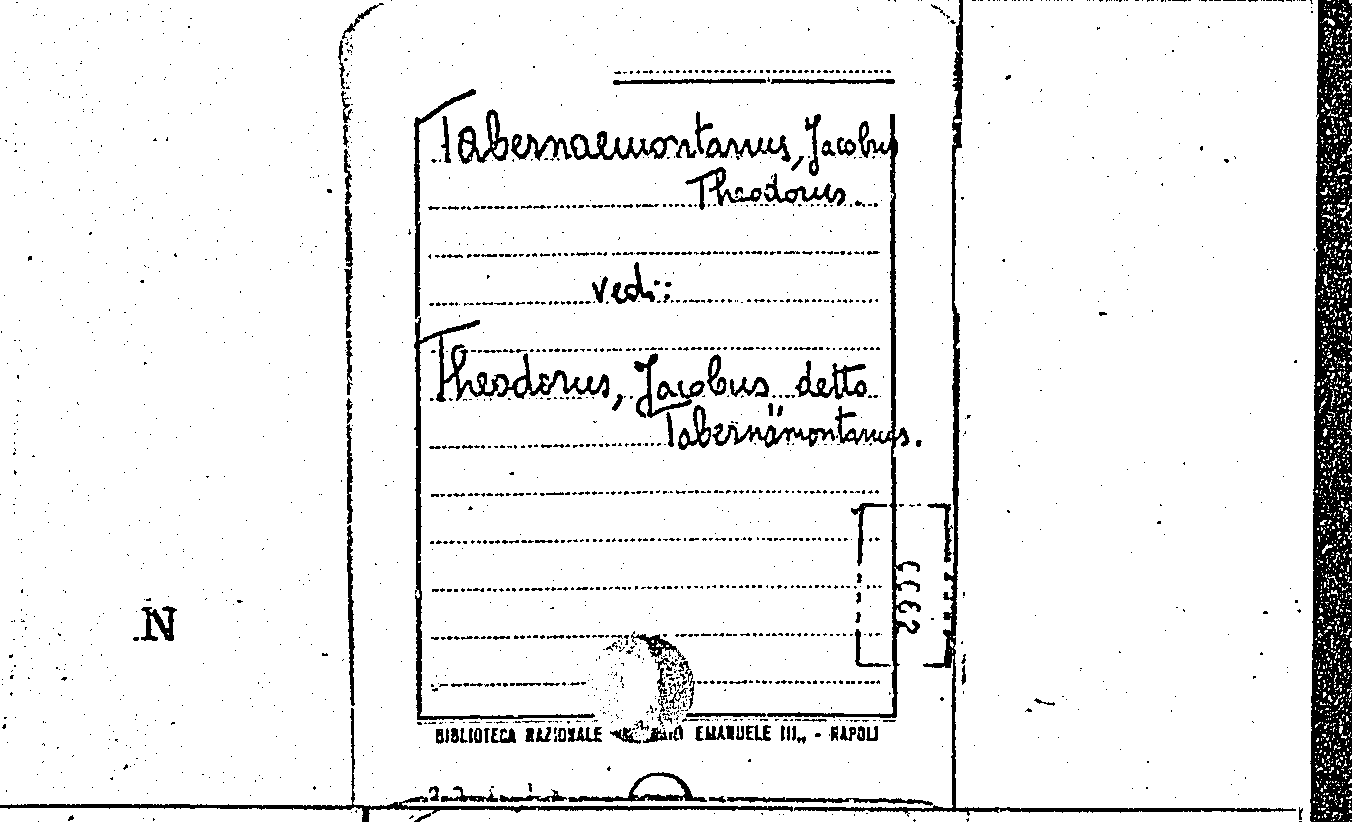 Tabernaemontanus, Jacobus
Theodorus.
vedi:
Theodorus, Jacobus detto
Tabernämontanus.
0062
N
BIBLIOTECA NAZIONALE EMANUELE III„ - NAPOLI